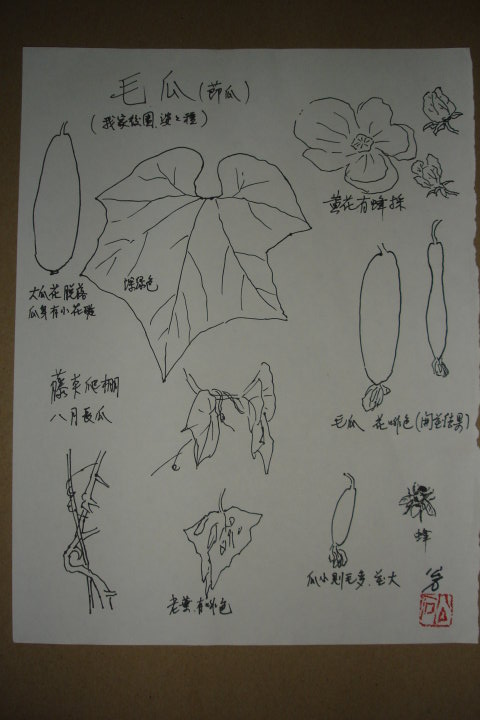 毛瓜(節瓜)
(我家後園,婆々種)
黄花有蜂採
深緑色
大瓜花脱落
瓜身有小花斑
藤夾爬棚
八月長瓜
毛瓜 花啡色(開花結果)
蜂
瓜小則毛多,花大
老葉有啡色